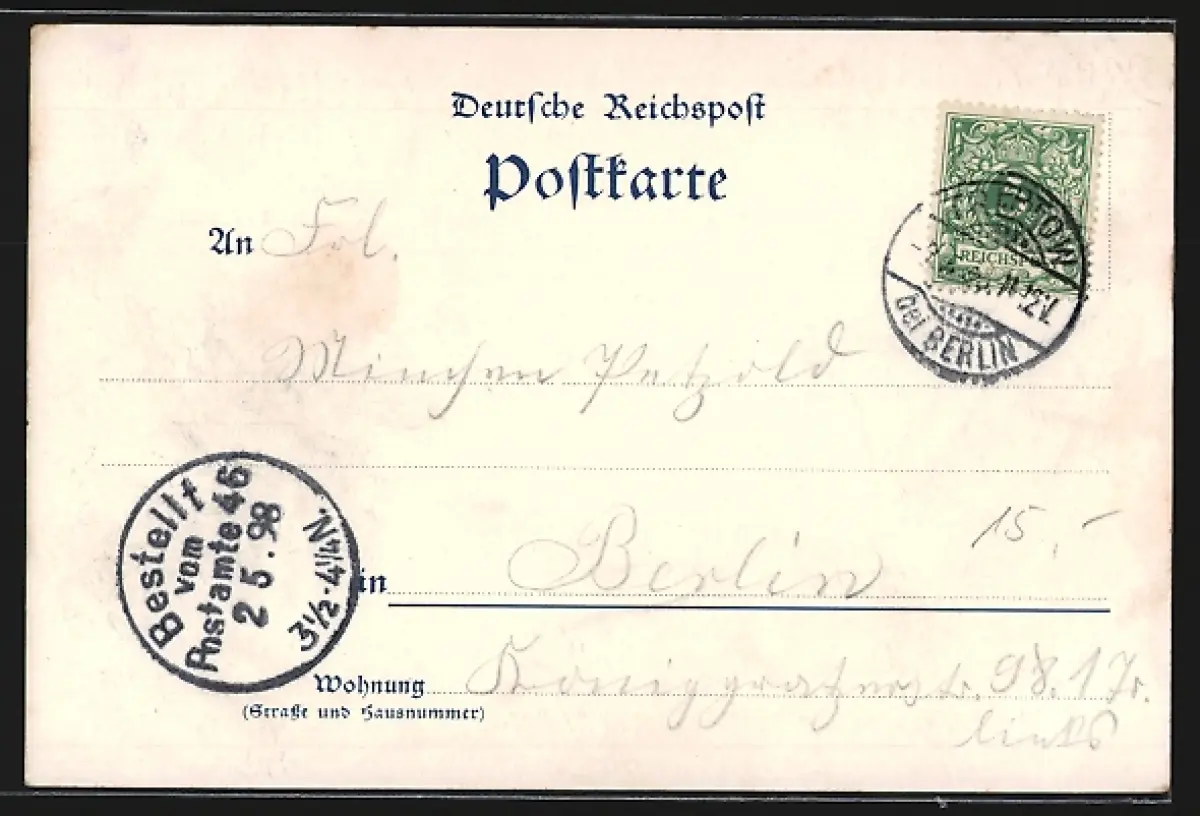 Deutsche Reichspost
Postkarte
An Frl.
Minchen Petzold
in Berlin
15,-
Wohnung Königgrätzerstr. 98. 1 Tr.
(Straße und Hausnummer)
links
REICHSP
bei BERLIN
Bestellt
vom
Postamte 46
2 5. 98
3½-4¼N.